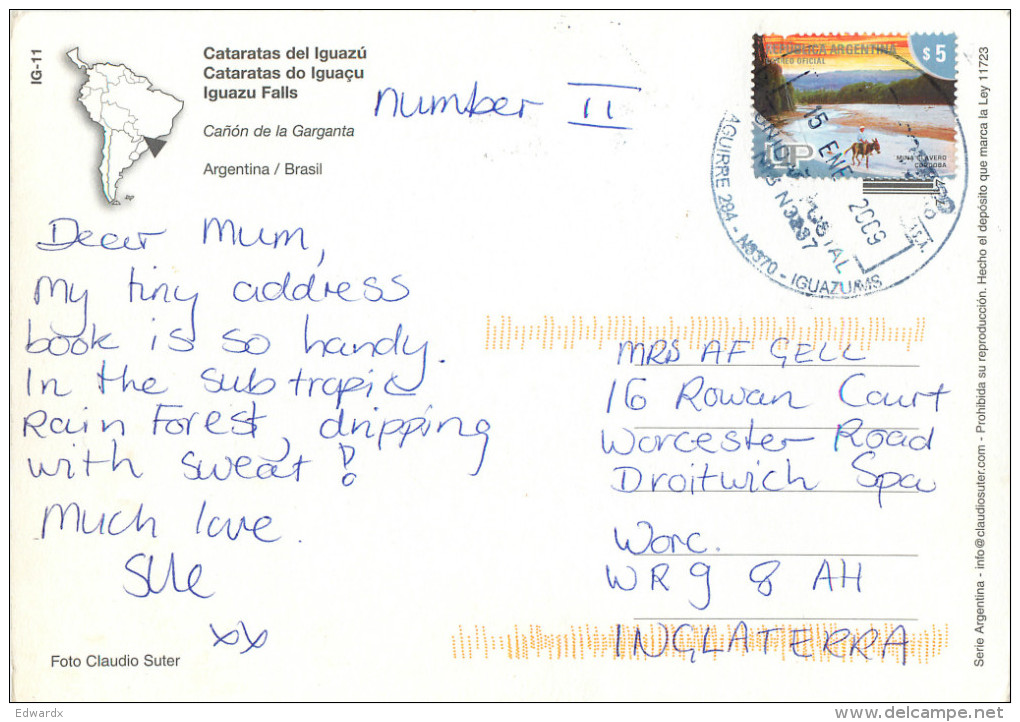 IG-11
Cataratas del Iguazú
Cataratas do Iguaçu
Iguazu Falls
Cañón de la Garganta
Argentina / Brasil
number II
REPUBLICA ARGENTINA
CORREO OFICIAL
$5
UP
MINA CLAVERO
CORDOBA
15 ENE 2009
AGUIRRE 294 - N3370 - IGUAZU/MS
Dear Mum,
My tiny address
book is so handy.
In the sub tropic
Rain Forest, dripping
with sweat!
Much love.
Sue
xx
MRS AF GELL
16 Rowan Court
Worcester Road
Droitwich Spa
Worc.
WR9 8 AH
INGLATERRA
Foto Claudio Suter
Serie Argentina - info@claudiosuter.com - Prohibida su reproducción. Hecho el depósito que marca la Ley 11723
Edwardx
www.delcampe.net